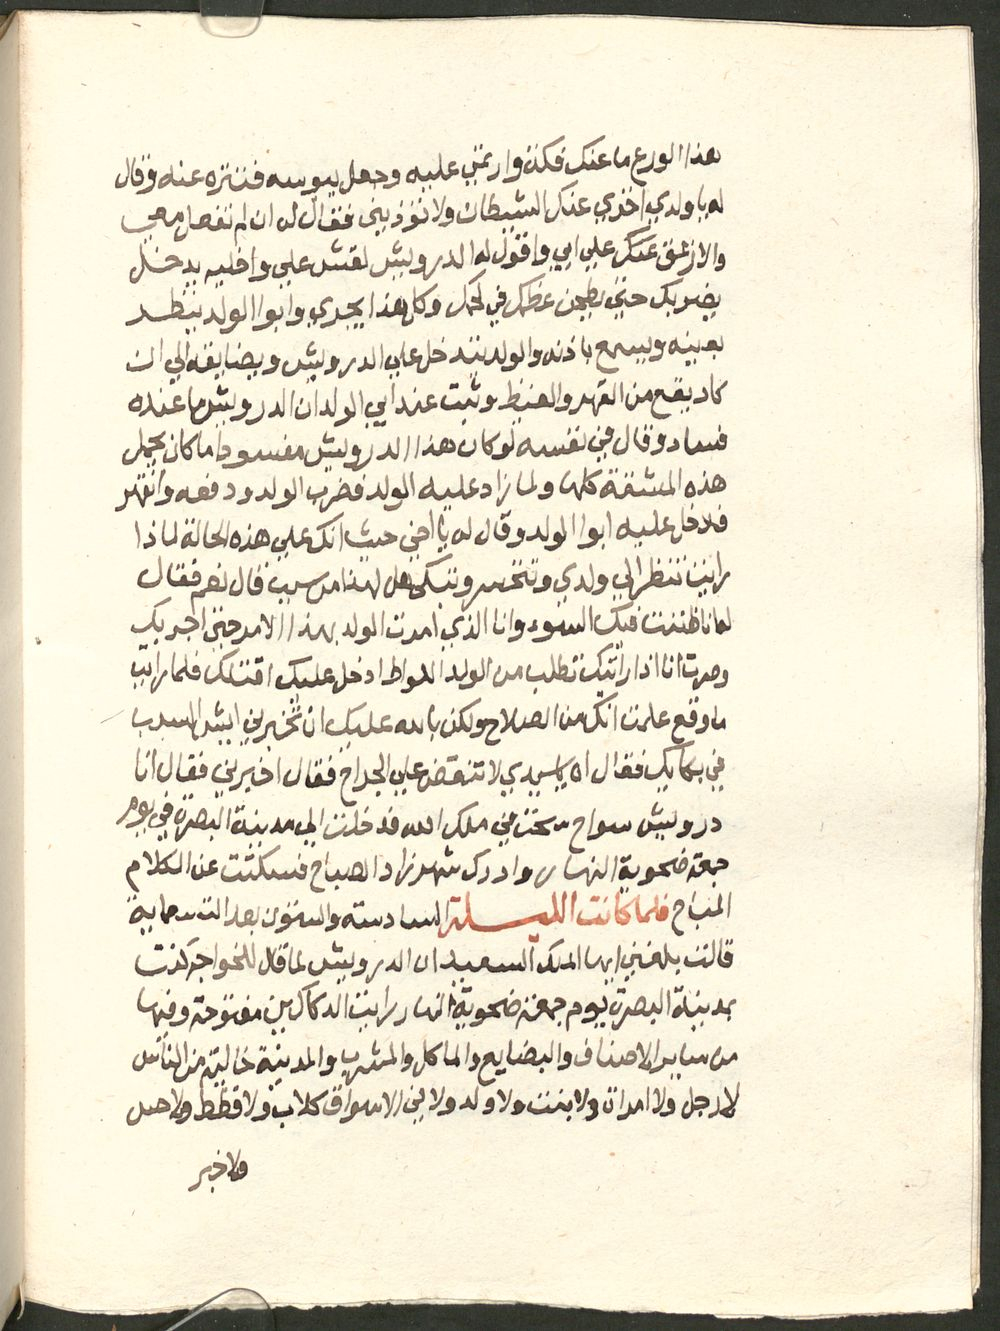 هذا الورع ما عنك فكه وارتمي عليه وجعل يبوسه فتنزه عنه وقال
له يا ولدي اخزي عنك الشيطان ولا توذيني فقال له ان لم تفعل معي
والا ازعق عنك علي ابي واقول له الدرويش لقش علي واخليه يدخل
يضربك حتي يطحن عظمك في لحمك وكل هذا يجري وابو الولد ينظر
بعينه ويسمع باذنه والولد يتدخل علي الدرويش ويضايقه الي ان
كاد يقع من القهر والغيظ وثبت عند ابي الولد ان الدرويش ما عنده
فساد وقال في نفسه لو كان هذا الدرويش مفسودا ما كان يحمل
هذه المشقة كلها ولما زاد عليه الولد فضرب الولد ودفعه وانتهر
فدخل عليه ابوا الولد وقال له يا اخي حيث انك علي هذه الحالة لماذا
رايت تنظر الي ولدي وتتحسر وتبكي هل لهذا من سبب قال نعم فقال
لما انا ظننت فيك السوء وانا الذي امرت الولد بهذا الامر حتي اجربك
وصرت انا اذا رايتك تطلب من الولد اللواط ادخل عليك اقتلك فلما رايت
ما وقع علمت انك من الصلاح ولكن بالله عليك ان تخبرني ايش السبب
في بكايك فقال اه يا سيدي لا تنقض علي الجراح فقال اخبرني فقال انا
درويش سواح سحت في ملك الله فدخلت الي مدينة البصرة في يوم
جمعة ضحوية النهار وادرك شهرزاد الصباح فسكتت عن الكلام
المباح فلما كانت الليلة السادسة والستون بعد التسعماية
قالت بلغني ايها الملك السعيد ان الدرويش لما قال للخواجه كنت
بمدينة البصرة يوم جمعة ضحوية النهار رايت الدكاكين مفتوحة وفيها
من ساير الاصناف والبضايع والماكل والمشرب والمدينة خالية من الناس
لا رجل ولا امراة ولا بنت ولا ولد ولا في الاسواق كلاب ولا قطط ولا حس
ولا خبر